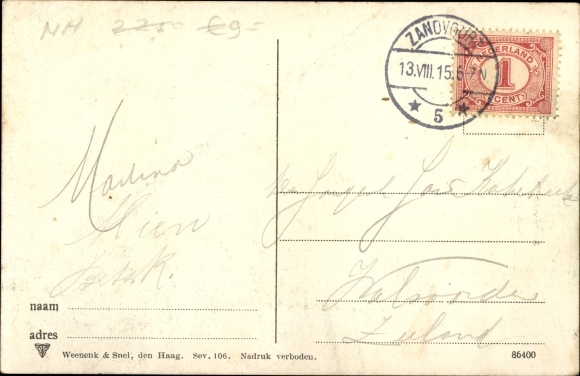 NH 2250 €9=
ZANDVOORT
13.VIII.15.6-7N
5
NEDERLAND
1
CENT
Martina
Mien
naam
adres
Walsoorden
Zeeland
Weenenk & Snel, den Haag. Sev. 106. Nadruk verboden.
86400